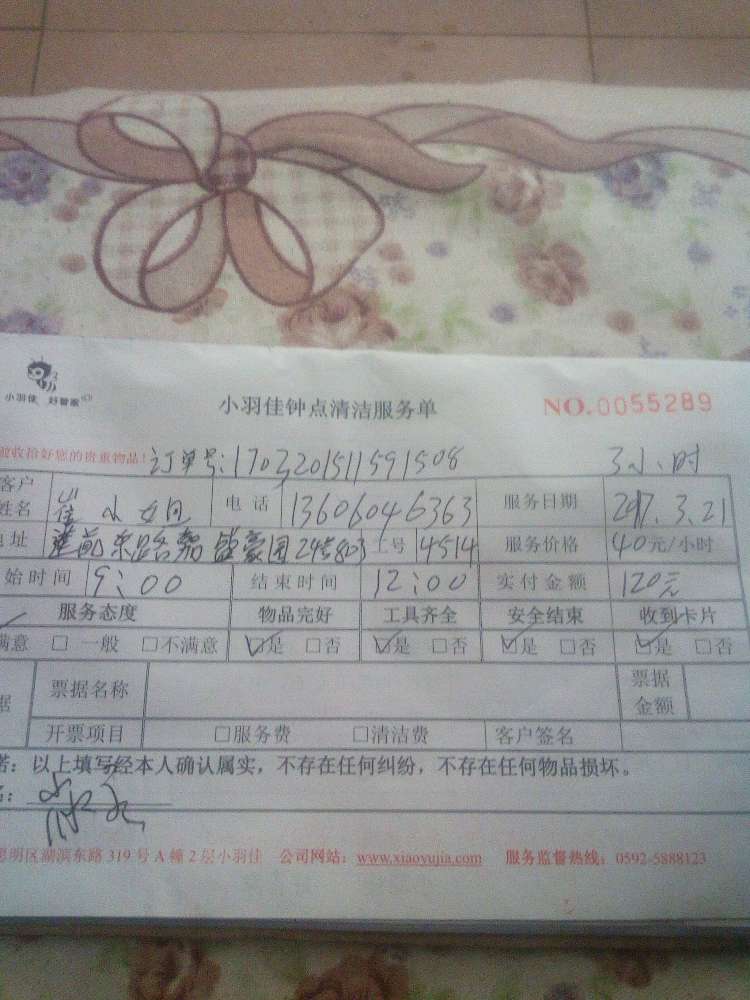 小羽佳 好管家
小羽佳钟点清洁服务单
NO.0055289
收拾好您的贵重物品! 订单号:1703201511591508 3小时
客户姓名 崔小姐 电话 13606046363 服务日期 2017.3.21
地址 24号803 工号 4514 服务价格 40元/小时
始时间 9:00 结束时间 12:00 实付金额 120元
服务态度 物品完好 工具齐全 安全结束 收到卡片
满意 □一般 □不满意 ☑是 □否 ☑是 □否 ☑是 □否 ☑是 □否
据 票据名称 票据金额
开票项目 □服务费 □清洁费 客户签名
诺:以上填写经本人确认属实,不存在任何纠纷,不存在任何物品损坏。
名:
思明区湖滨东路319号A幢2层小羽佳 公司网站:www.xiaoyujia.com 服务监督热线:0592-5888123